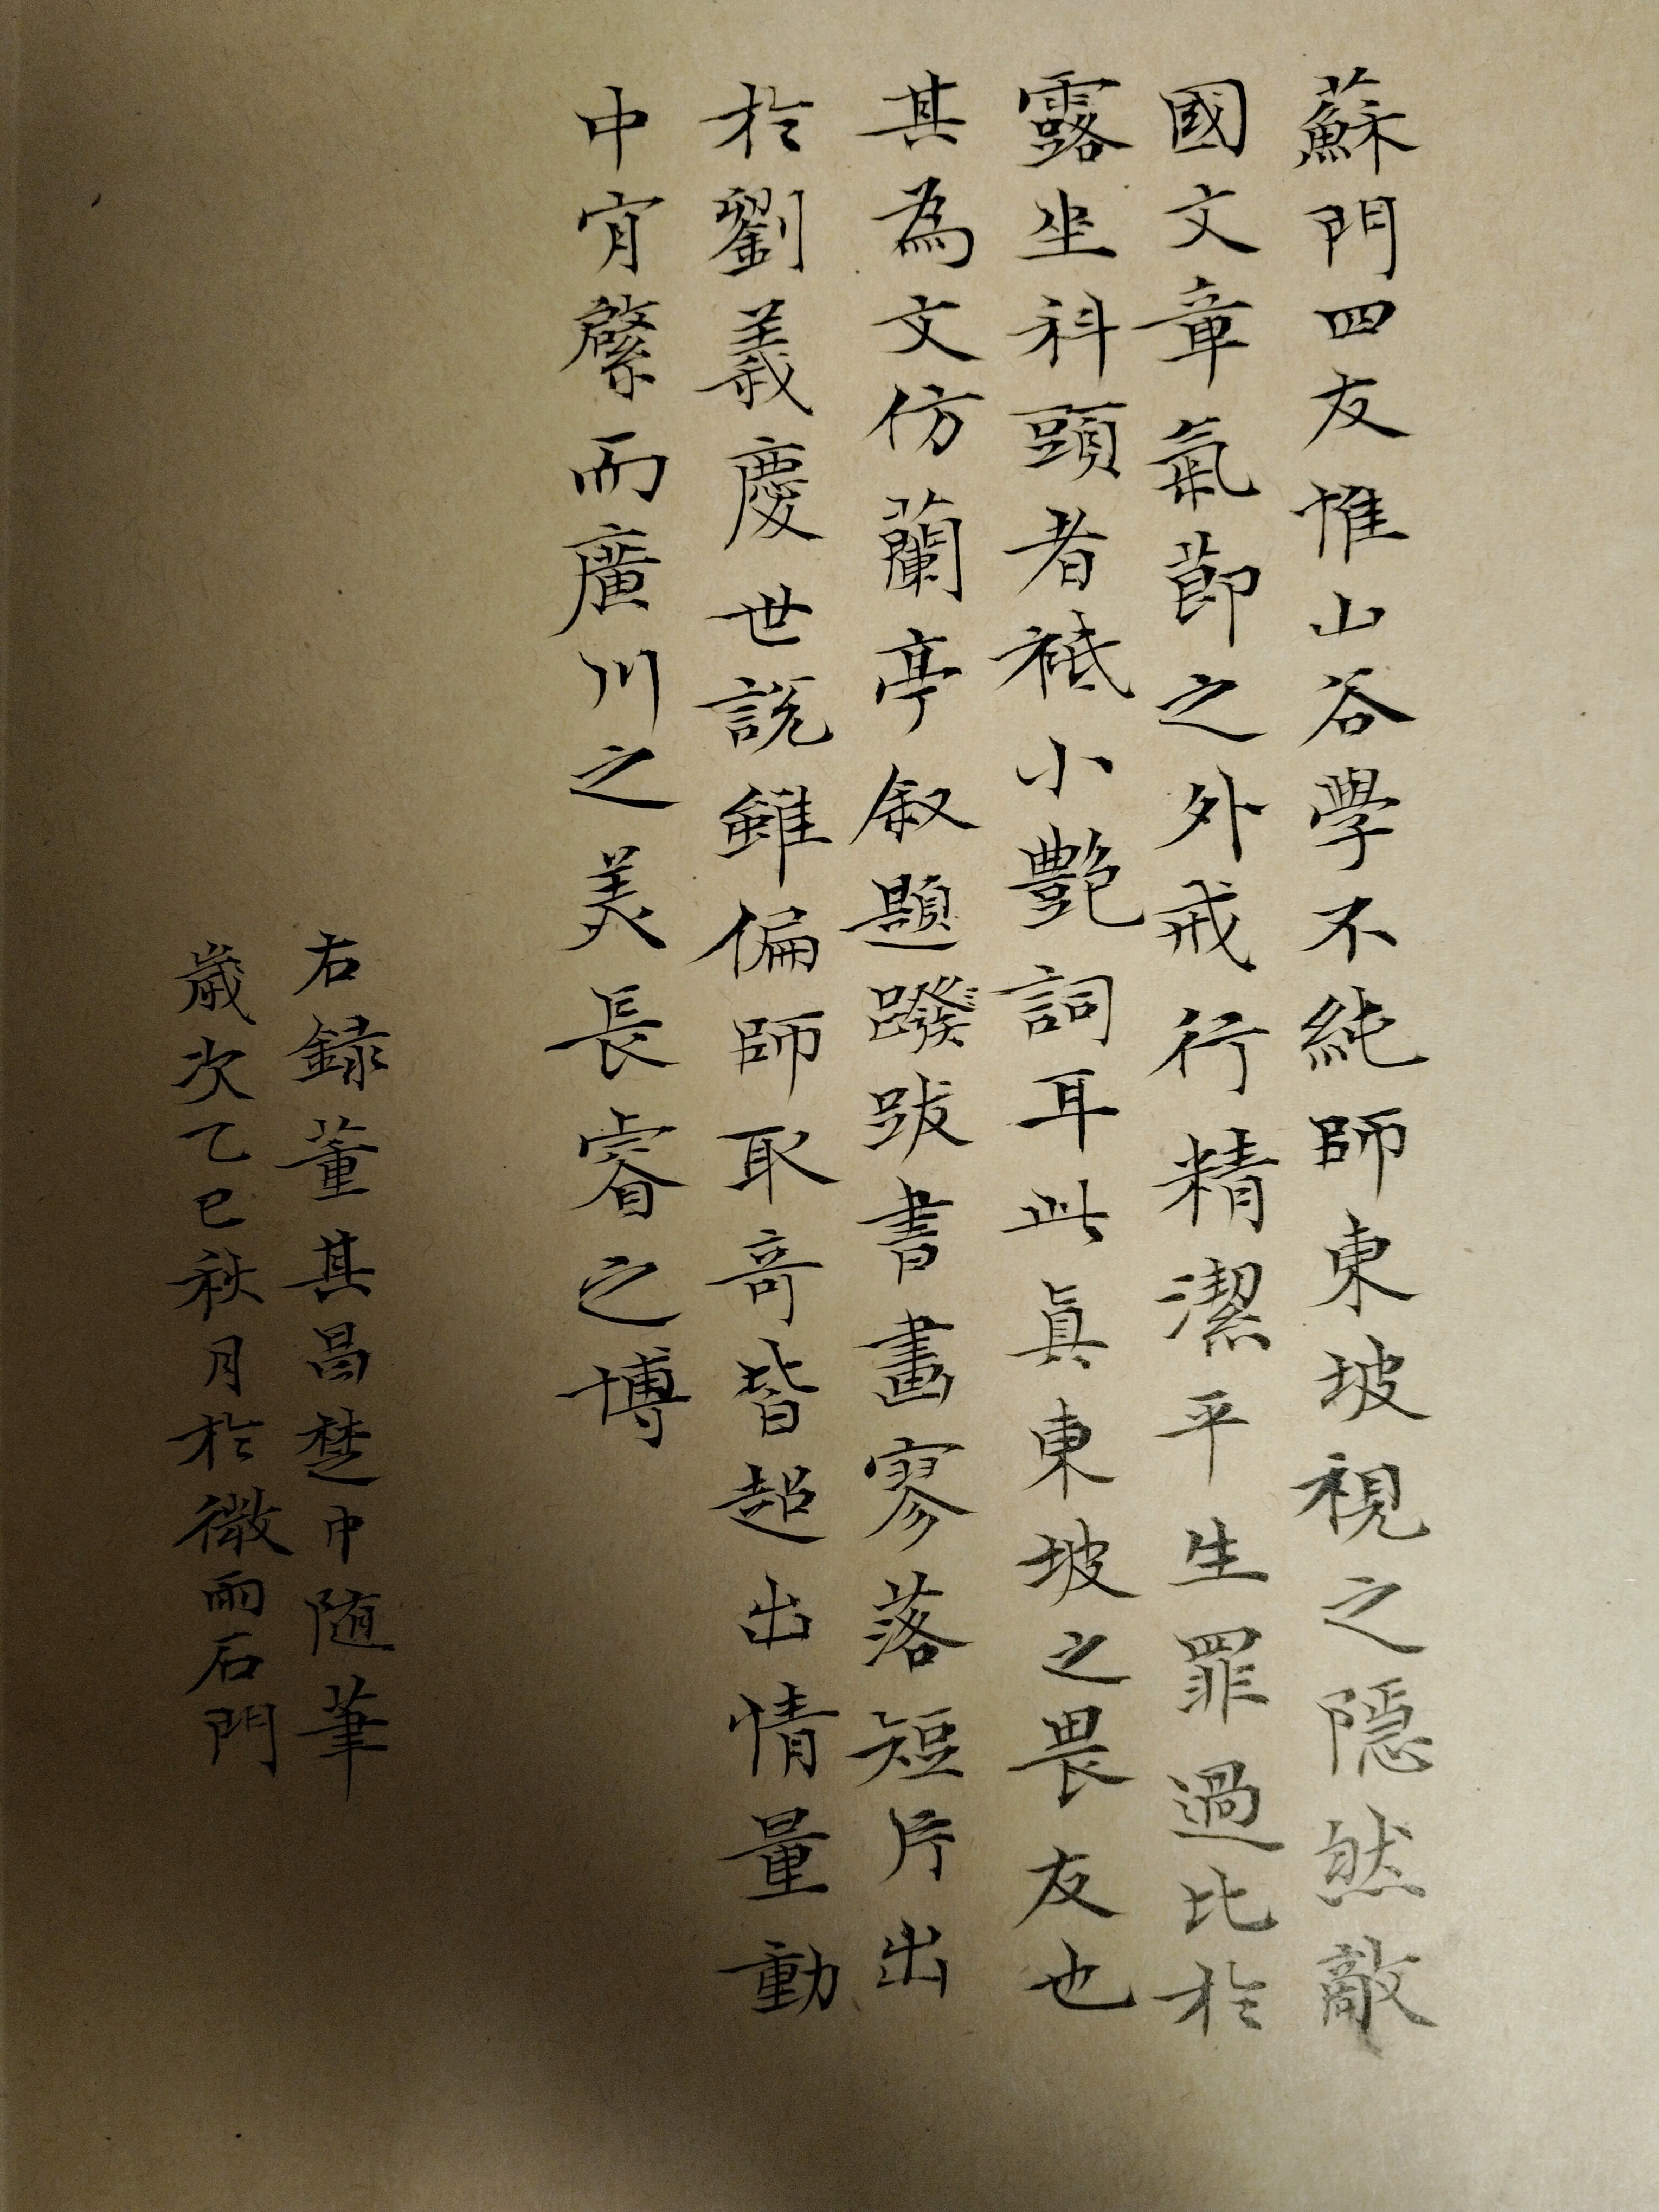 蘇門四友惟山谷學不純師東坡視之隱然敵
國文章氣節之外戒行精潔平生罪過比於
露坐科頭者袛小艷詞耳此眞東坡之畏友也
其為文仿蘭亭叙題蹳跋書畫寥落短片出
於劉義慶世說雖偏師取奇皆超出情量動
中肯綮而廣川之美長睿之博
右録董其昌楚中随筆
歲次乙巳秋月於微雨石門